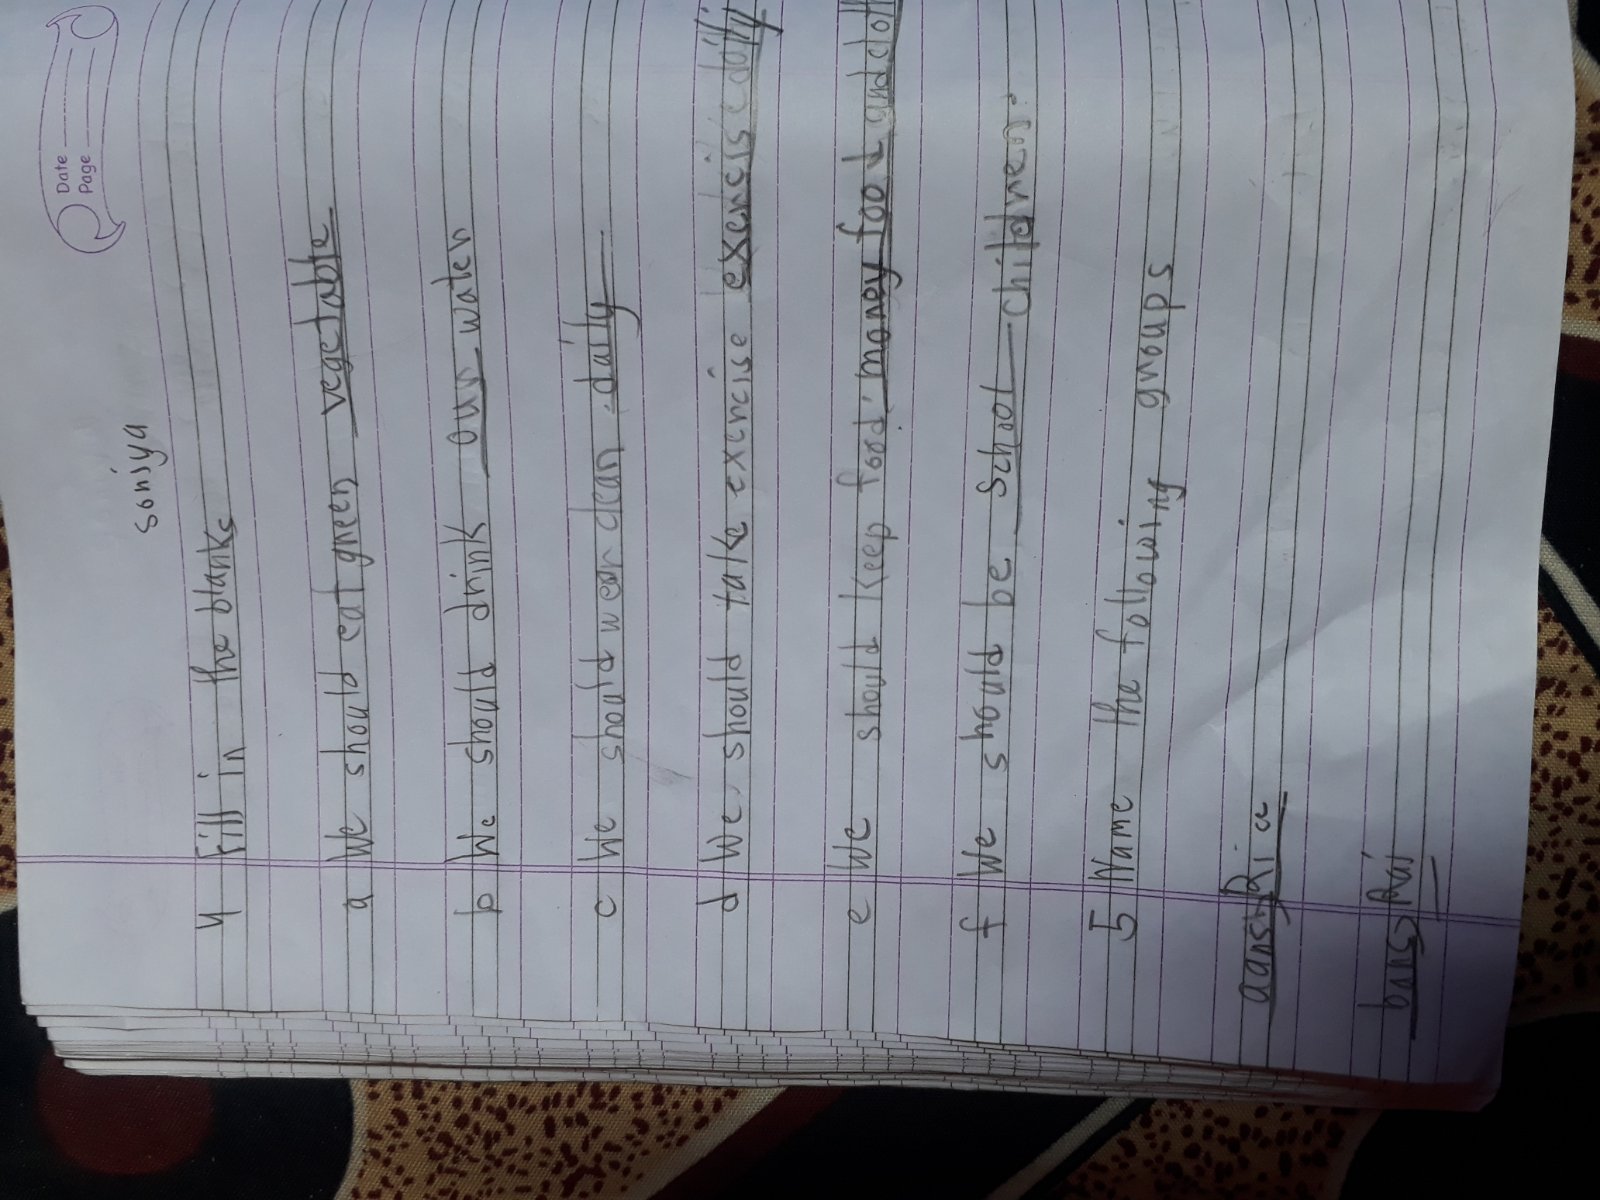 Date
Page
soniya
4 Fill in the blanks
a We should eat green vegetable
b We should drink our water
c We should wear clean daily
d We should take exercise exercise daily
e We should keep food money food and cloth
f We should be School children.
5 Name the following groups
aans Rice
bans Rai